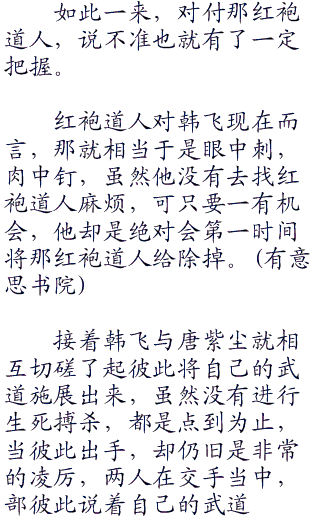 如此一来，对付那红袍
道人，说不准也就有了一定
把握。
红袍道人对韩飞现在而
言，那就相当于是眼中刺，
肉中钉，虽然他没有去找红
袍道人麻烦，可只要一有机
会，他却是绝对会第一时间
将那红袍道人给除掉。(有意
思书院)
接着韩飞与唐紫尘就相
互切磋了起彼此将自己的武
道施展出来，虽然没有进行
生死搏杀，都是点到为止，
当彼此出手，却仍旧是非常
的凌厉，两人在交手当中，
部彼此说着自己的武道